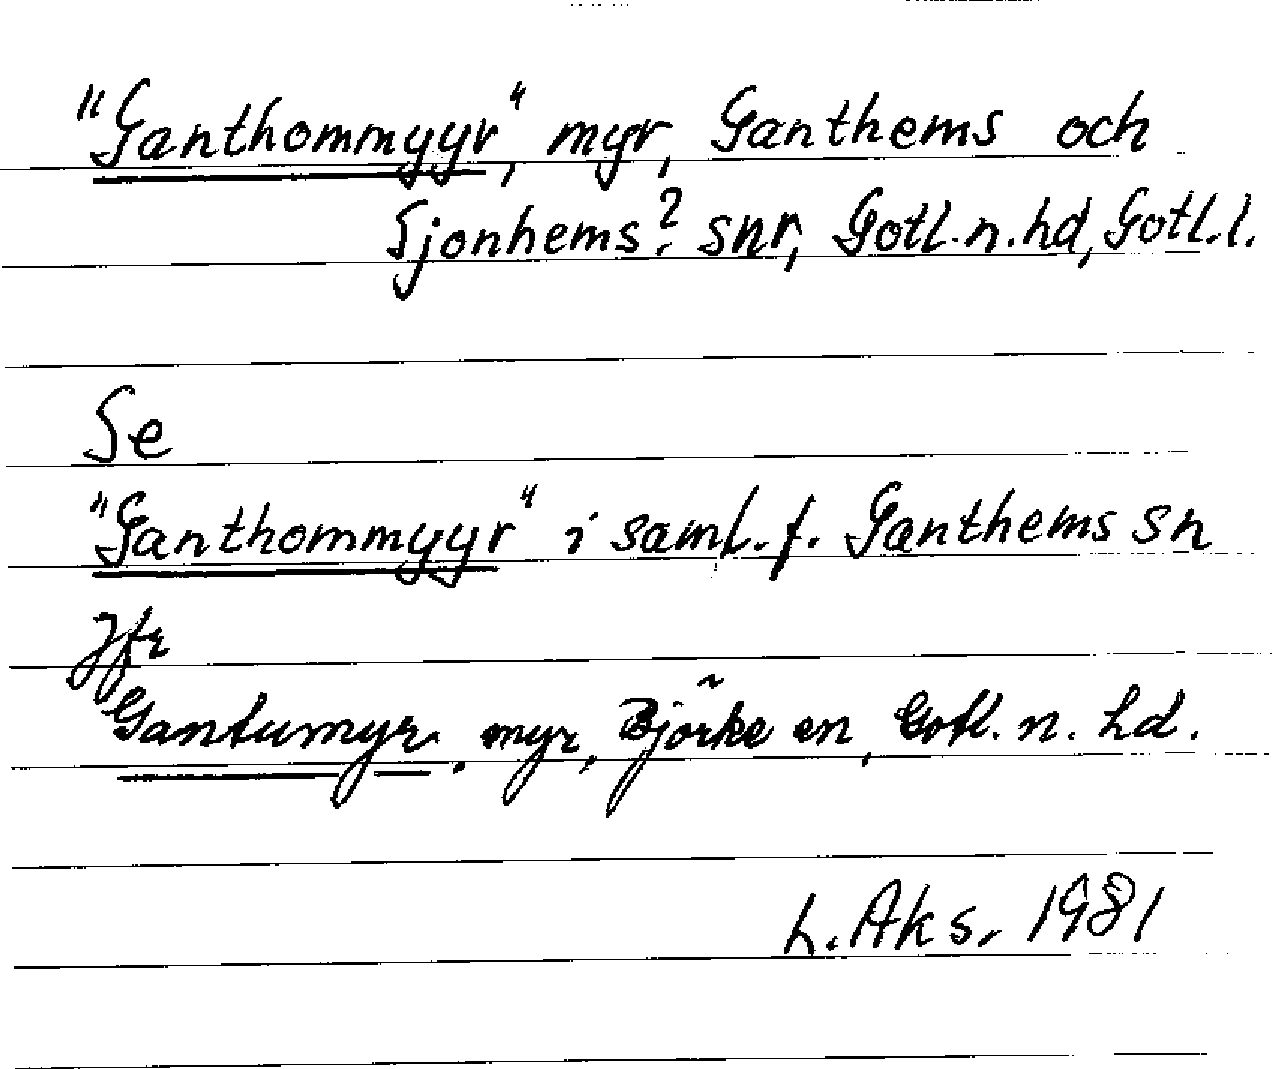 "Ganthommyyr", myr, Ganthems och
Sjonhems? snr, Gotl. n. hd, Gotl. l.
Se
"Ganthommyyr" i saml. f. Ganthems sn
Jfr
Gantumyr. myr, Björke sn, Gotl. n. hd.
L. Aks. 1981